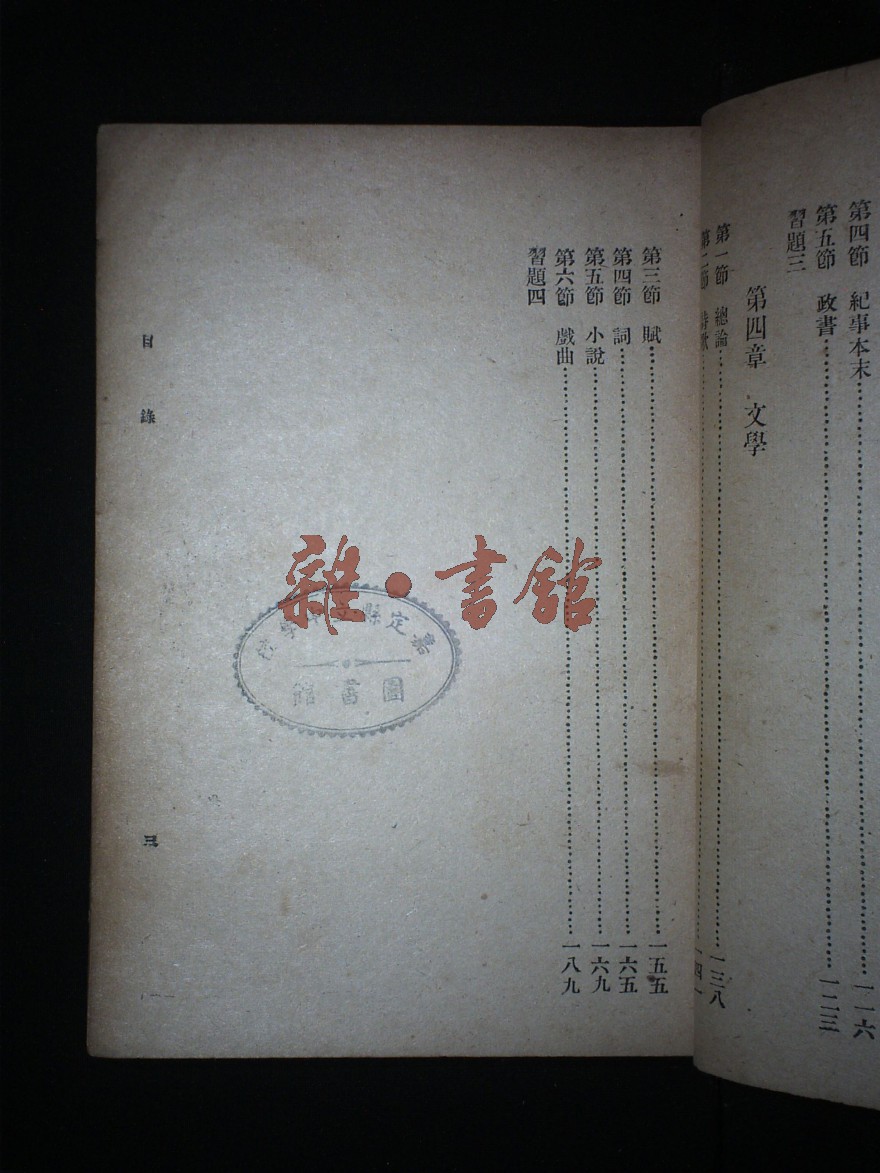 第四節 紀事本末……一一六
第五節 政書……一二三
習題三
第四章 文學
第一節 總論……一三八
第二節 詩歌……一四一
第三節 賦……一五五
第四節 詞……一六五
第五節 小說……一六九
第六節 戲曲……一八九
習題四
目錄
三
雜·書館
嘉定縣
圖書館